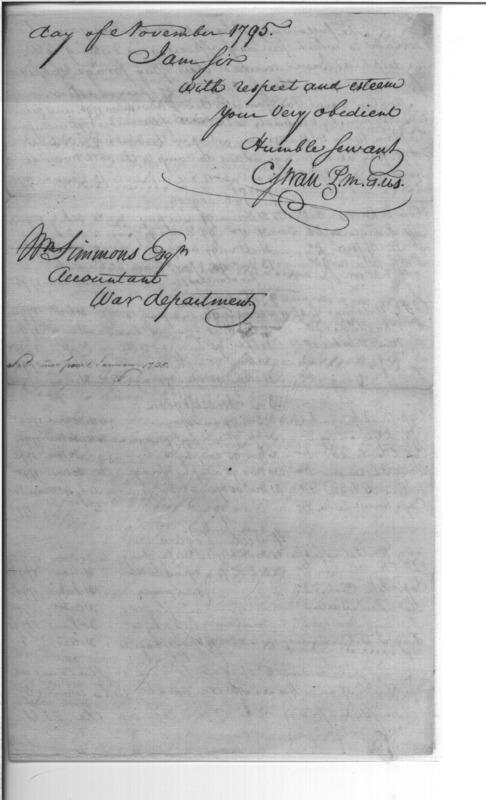 day of November 1795.
I am Sir
with respect and esteem
your very obedient
Humble Servant
CSwan P.M.G.US.
Wm Simmons Esqr
Accountant
War department
January